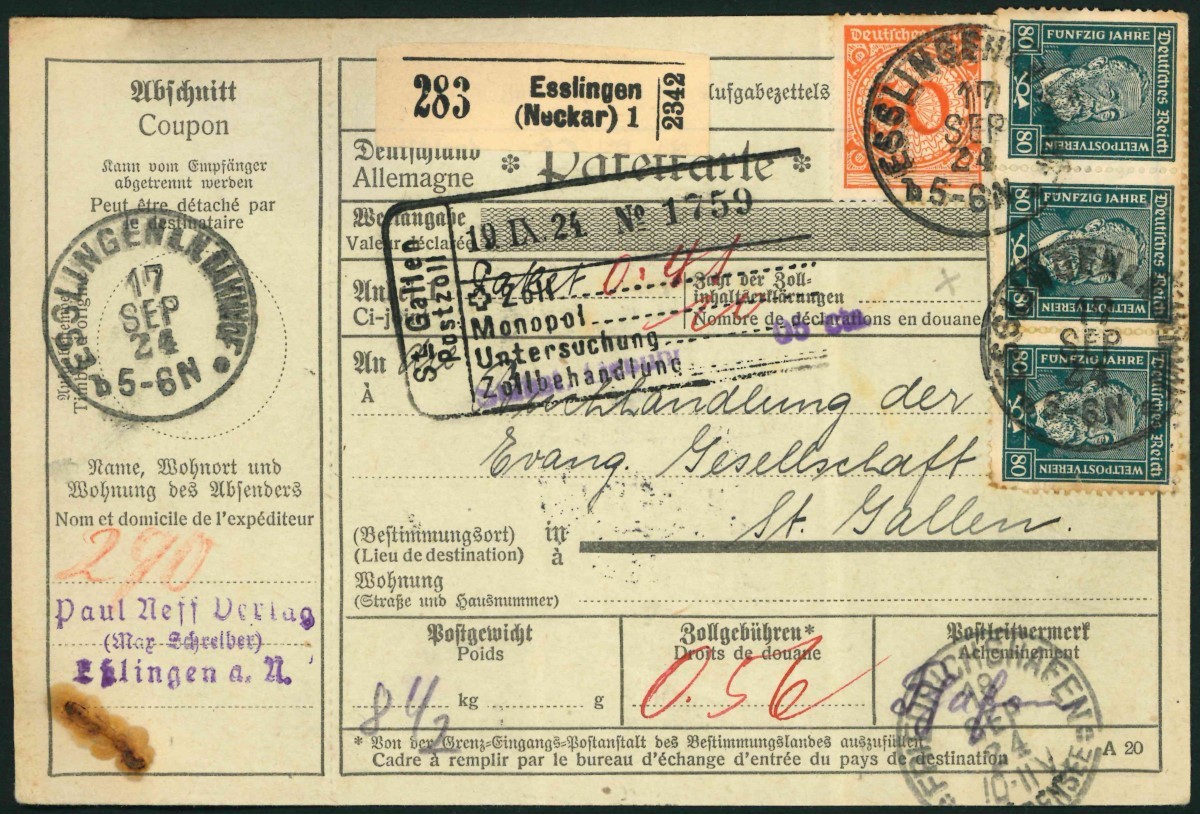 Abschnitt
Coupon
Kann vom Empfänger
abgetrennt werden
Peut être détaché par
le destinataire
ESSLINGEN
17
SEP
24
b 5-6N
Name, Wohnort und
Wohnung des Absenders
Nom et domicile de l'expéditeur
290
Paul Neff Verlag
(Max Schreiber)
Eßlingen a. N.
283
Esslingen
(Neckar) 1
2342
Aufgabezettels
Deutschland
Allemagne
* Paketkarte *
Wertangabe
Valeur déclarée
St. Gallen
Postzoll
19 IX. 24 No 1759
Zoll
Monopol
Untersuchung
Zollbehandlung
Paket
0.41
Zahl der Zoll-
inhaltserklärungen
Nombre de déclarations en douane
Ci-j
An
À
Buchhandlung der
Evang. Gesellschaft
St. Gallen.
(Bestimmungsort) in
(Lieu de destination) à
Wohnung
(Straße und Hausnummer)
Postgewicht
Poids
8 1/2
kg g
Zollgebühren*
Droits de douane
0.56
Postleitvermerk
Acheminement
* Von der Grenz-Eingangs-Postanstalt des Bestimmungslandes auszufüllen
Cadre à remplir par le bureau d'échange d'entrée du pays de destination
A 20
Deutsches
ESSLINGEN
17
SEP
24
b 5-6N
Deutsches Reich
FÜNFZIG JAHRE
80
80
WELTPOSTVEREIN
Deutsches Reich
80
80
WELTPOSTVEREIN
Deutsches Reich
FÜNFZIG JAHRE
80
80
WELTPOSTVEREIN
SEP
24
5-6N
FRIEDRICHSHAFEN
SEP
24
10-11V